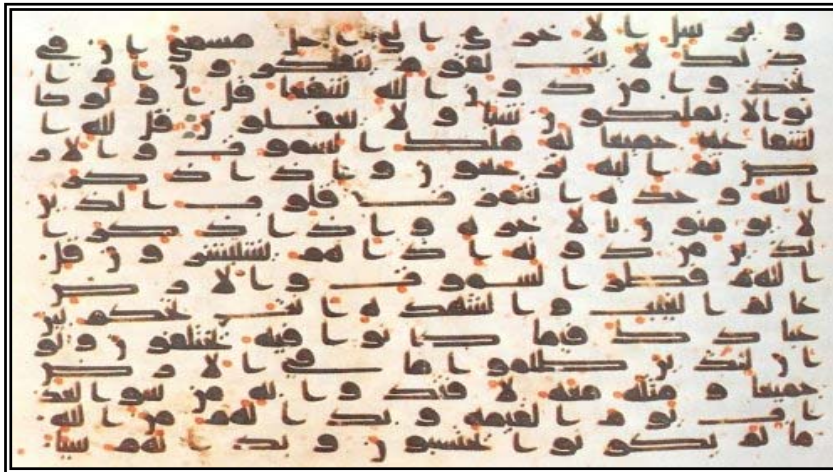 و يرسل الاخرى الى اجل مسمى ان في
ذلك لايت لقوم يتفكرون ام ا
تخذوا من دون الله شفعا قل او لو كا
نوا لا يملكون شيا و لا يعقلون قل لله ا
لشفعة جميعا له ملك السموت و الار
ض ثم اليه ترجعون و اذا ذكر
الله وحده اشمزت قلوب الذين
لا يومنون بالاخرة و اذا ذكر ا
لذين من دونه اذا هم يستبشرون قل
اللهم فطر السموت و الارض
علم الغيب و الشهدة انت تحكم بين
عبادك فيما كانوا فيه يختلفون و لو
ان للذين ظلموا ما في الارض
جميعا و مثله معه لافتدوا به من سو العذ
اب يوم القيمة و بدا لهم من الله
ما لم يكونوا يحتسبون و بدا لهم سيا